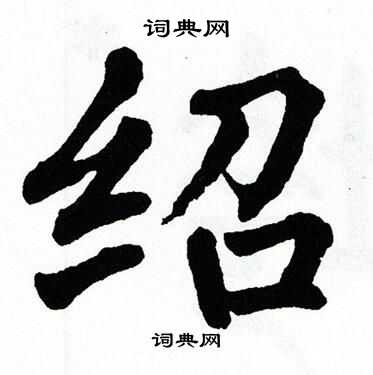 词典网
绍
词典网